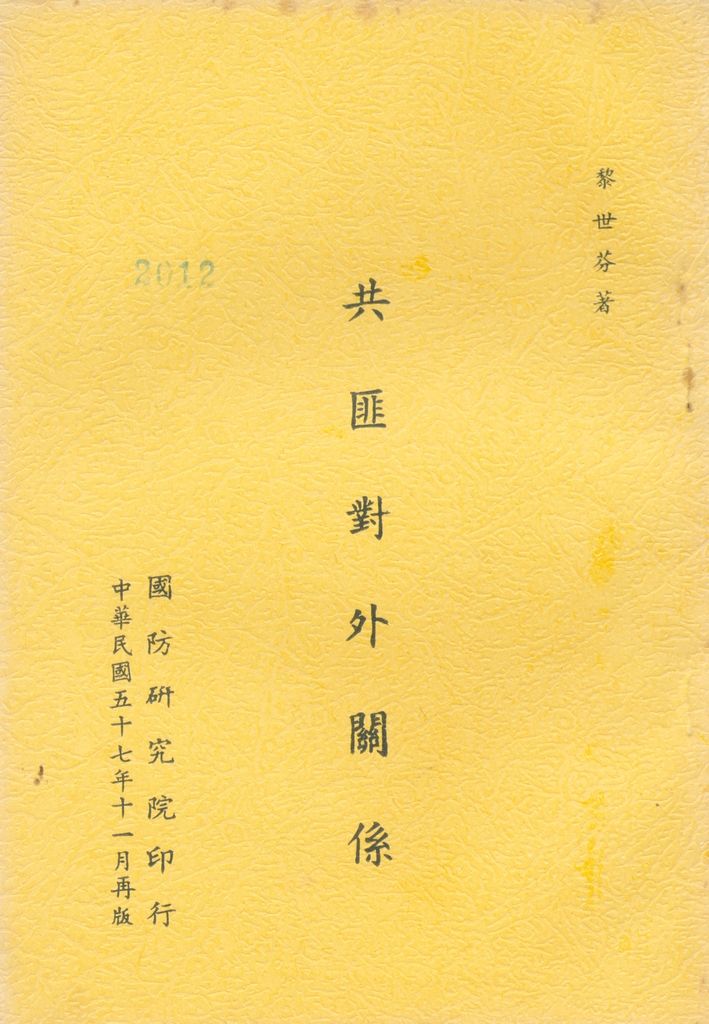 黎世芬著
共匪對外關係
國防研究院印行
中華民國五十七年十一月再版
2012